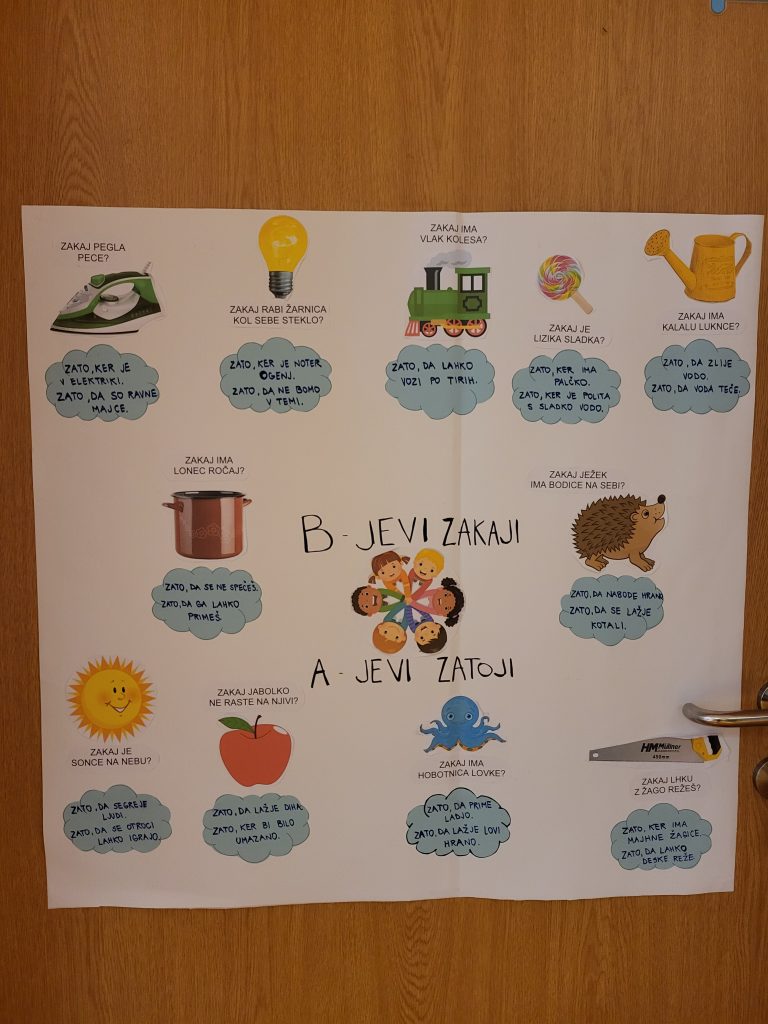 ZAKAJ PEGLA
PECE?
ZATO, KER JE
V ELEKTRIKI.
ZATO, DA SO RAVNE
MAJCE.
ZAKAJ RABI ŽARNICA
KOL SEBE STEKLO?
ZATO, KER JE NOTER
OGENJ.
ZATO, DA NE BOMO
V TEMI.
ZAKAJ IMA
VLAK KOLESA?
ZATO, DA LAHKO
VOZI PO TIRIH.
ZAKAJ JE
LIZIKA SLADKA?
ZATO, KER IMA
PALČKO.
ZATO, KER JE POLITA
S SLADKO VODO.
ZAKAJ IMA
KALALU LUKNCE?
ZATO, DA ZLIJE
VODO.
ZATO, DA VODA TEČE.
ZAKAJ IMA
LONEC ROČAJ?
ZATO, DA SE NE SPEČEŠ.
ZATO, DA GA LAHKO
PRIMEŠ
B - JEVI ZAKAJI
A - JEVI ZATOJI
ZAKAJ JEŽEK
IMA BODICE NA SEBI?
ZATO, DA NABODE HRANO
ZATO, DA SE LAŽJE
KOTALI.
ZAKAJ JE
SONCE NA NEBU?
ZATO, DA SEGREJE
LJUDI.
ZATO, DA SE OTROCI
LAHKO IGRAJO.
ZAKAJ JABOLKO
NE RASTE NA NJIVI?
ZATO, DA LAŽJE DIHA.
ZATO, KER BI BILO
UMAZANO.
ZAKAJ IMA
HOBOTNICA LOVKE?
ZATO, DA PRIME
LADJO.
ZATO, DA LAŽJE LOVI
HRANO.
HM Müllner
450mm
ZAKAJ LHKU
Z ŽAGO REŽEŠ?
ZATO, KER IMA
MAJHNE ŽAGICE.
ZATO, DA LAHKO
DESKE REŽE.